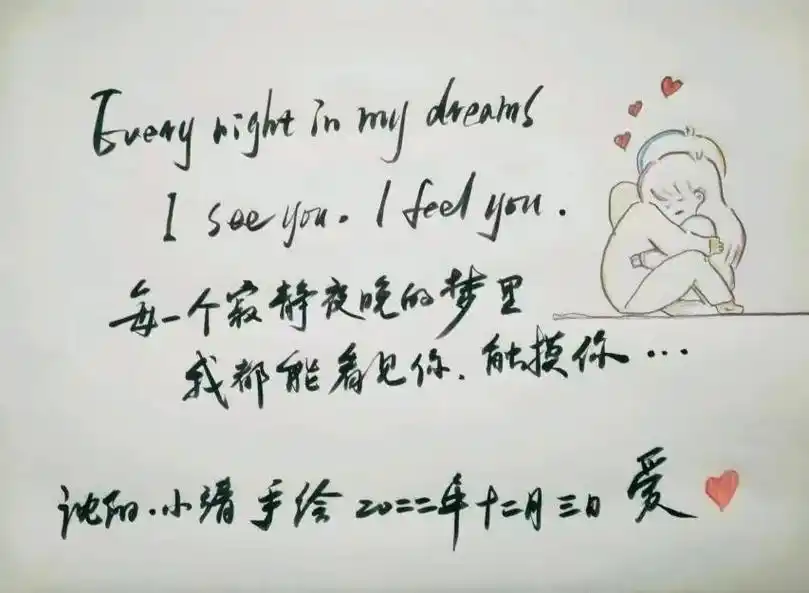 Every night in my dreams
I see you. I feel you.
每一个寂静夜晚的梦里
我都能看见你.触摸你...
沈阳.小 手绘 2022年十二月三日 爱